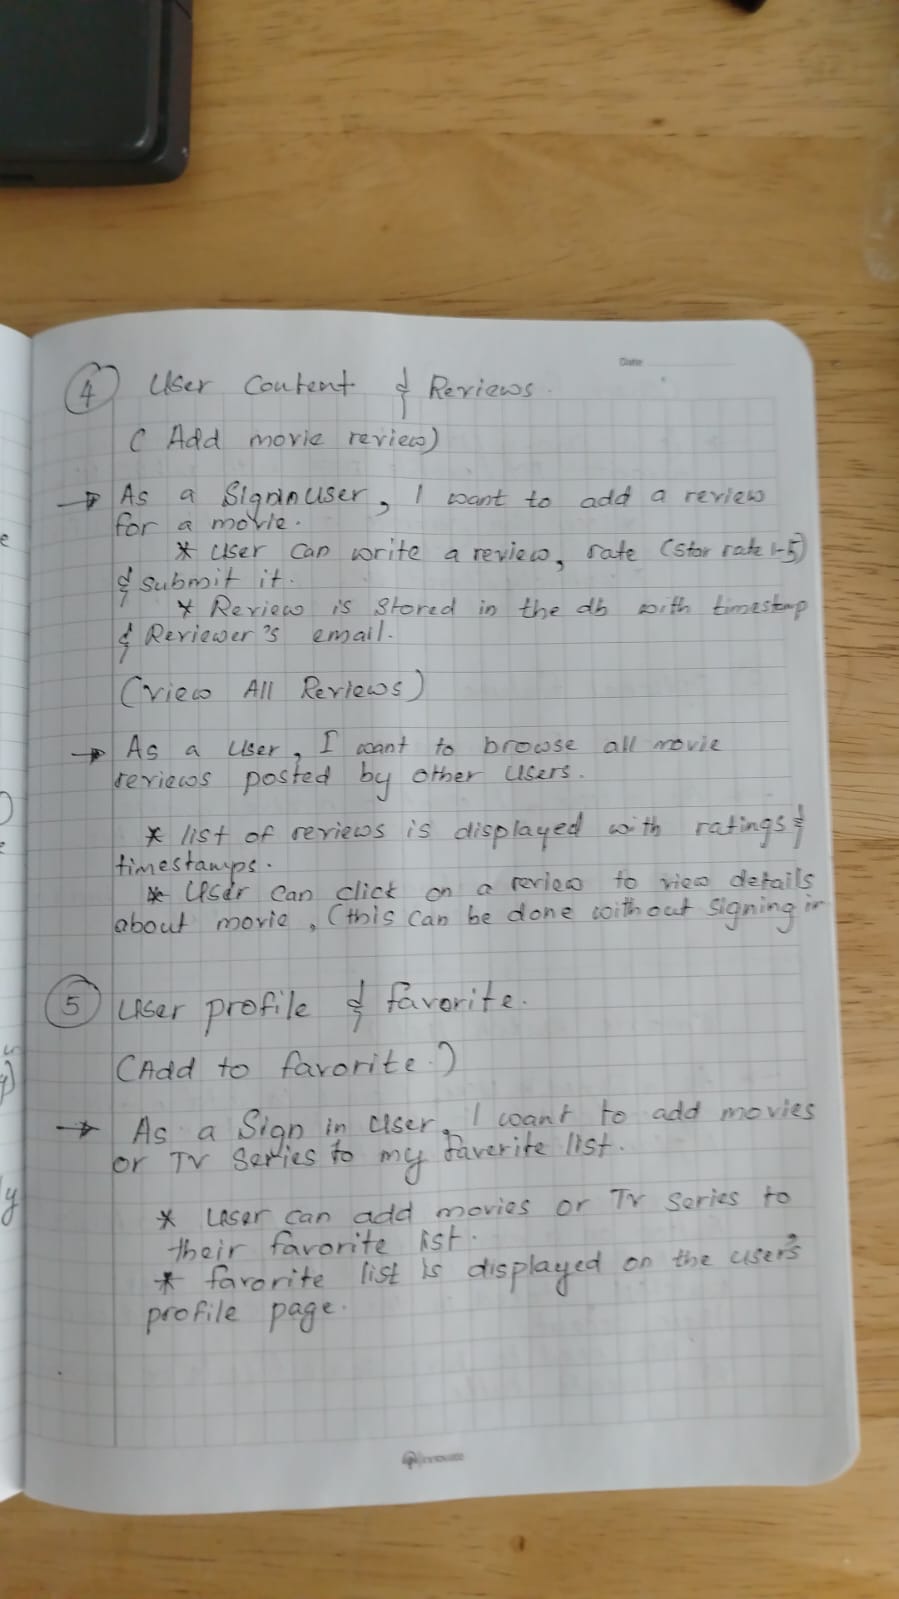 Date
④ User Content & Reviews.
( Add movie review)
→ As a Signin user, I want to add a review
for a movie.
* User can write a review, rate (star rate 1-5)
& submit it.
* Review is Stored in the db with timestamp
& Reviewer's email.
(View All Reviews)
→ As a User, I want to browse all movie
reviews posted by other Users.
* list of reviews is displayed with ratings &
timestamps.
* User can click on a review to view details
about movie, (this can be done without signing in
⑤ User profile & favorite.
(Add to favorite.)
→ As a Sign in User, I want to add movies
or TV Series to my faverite list.
* User can add movies or TV Series to
their favorite list.
* favorite list is displayed on the user's
profile page.